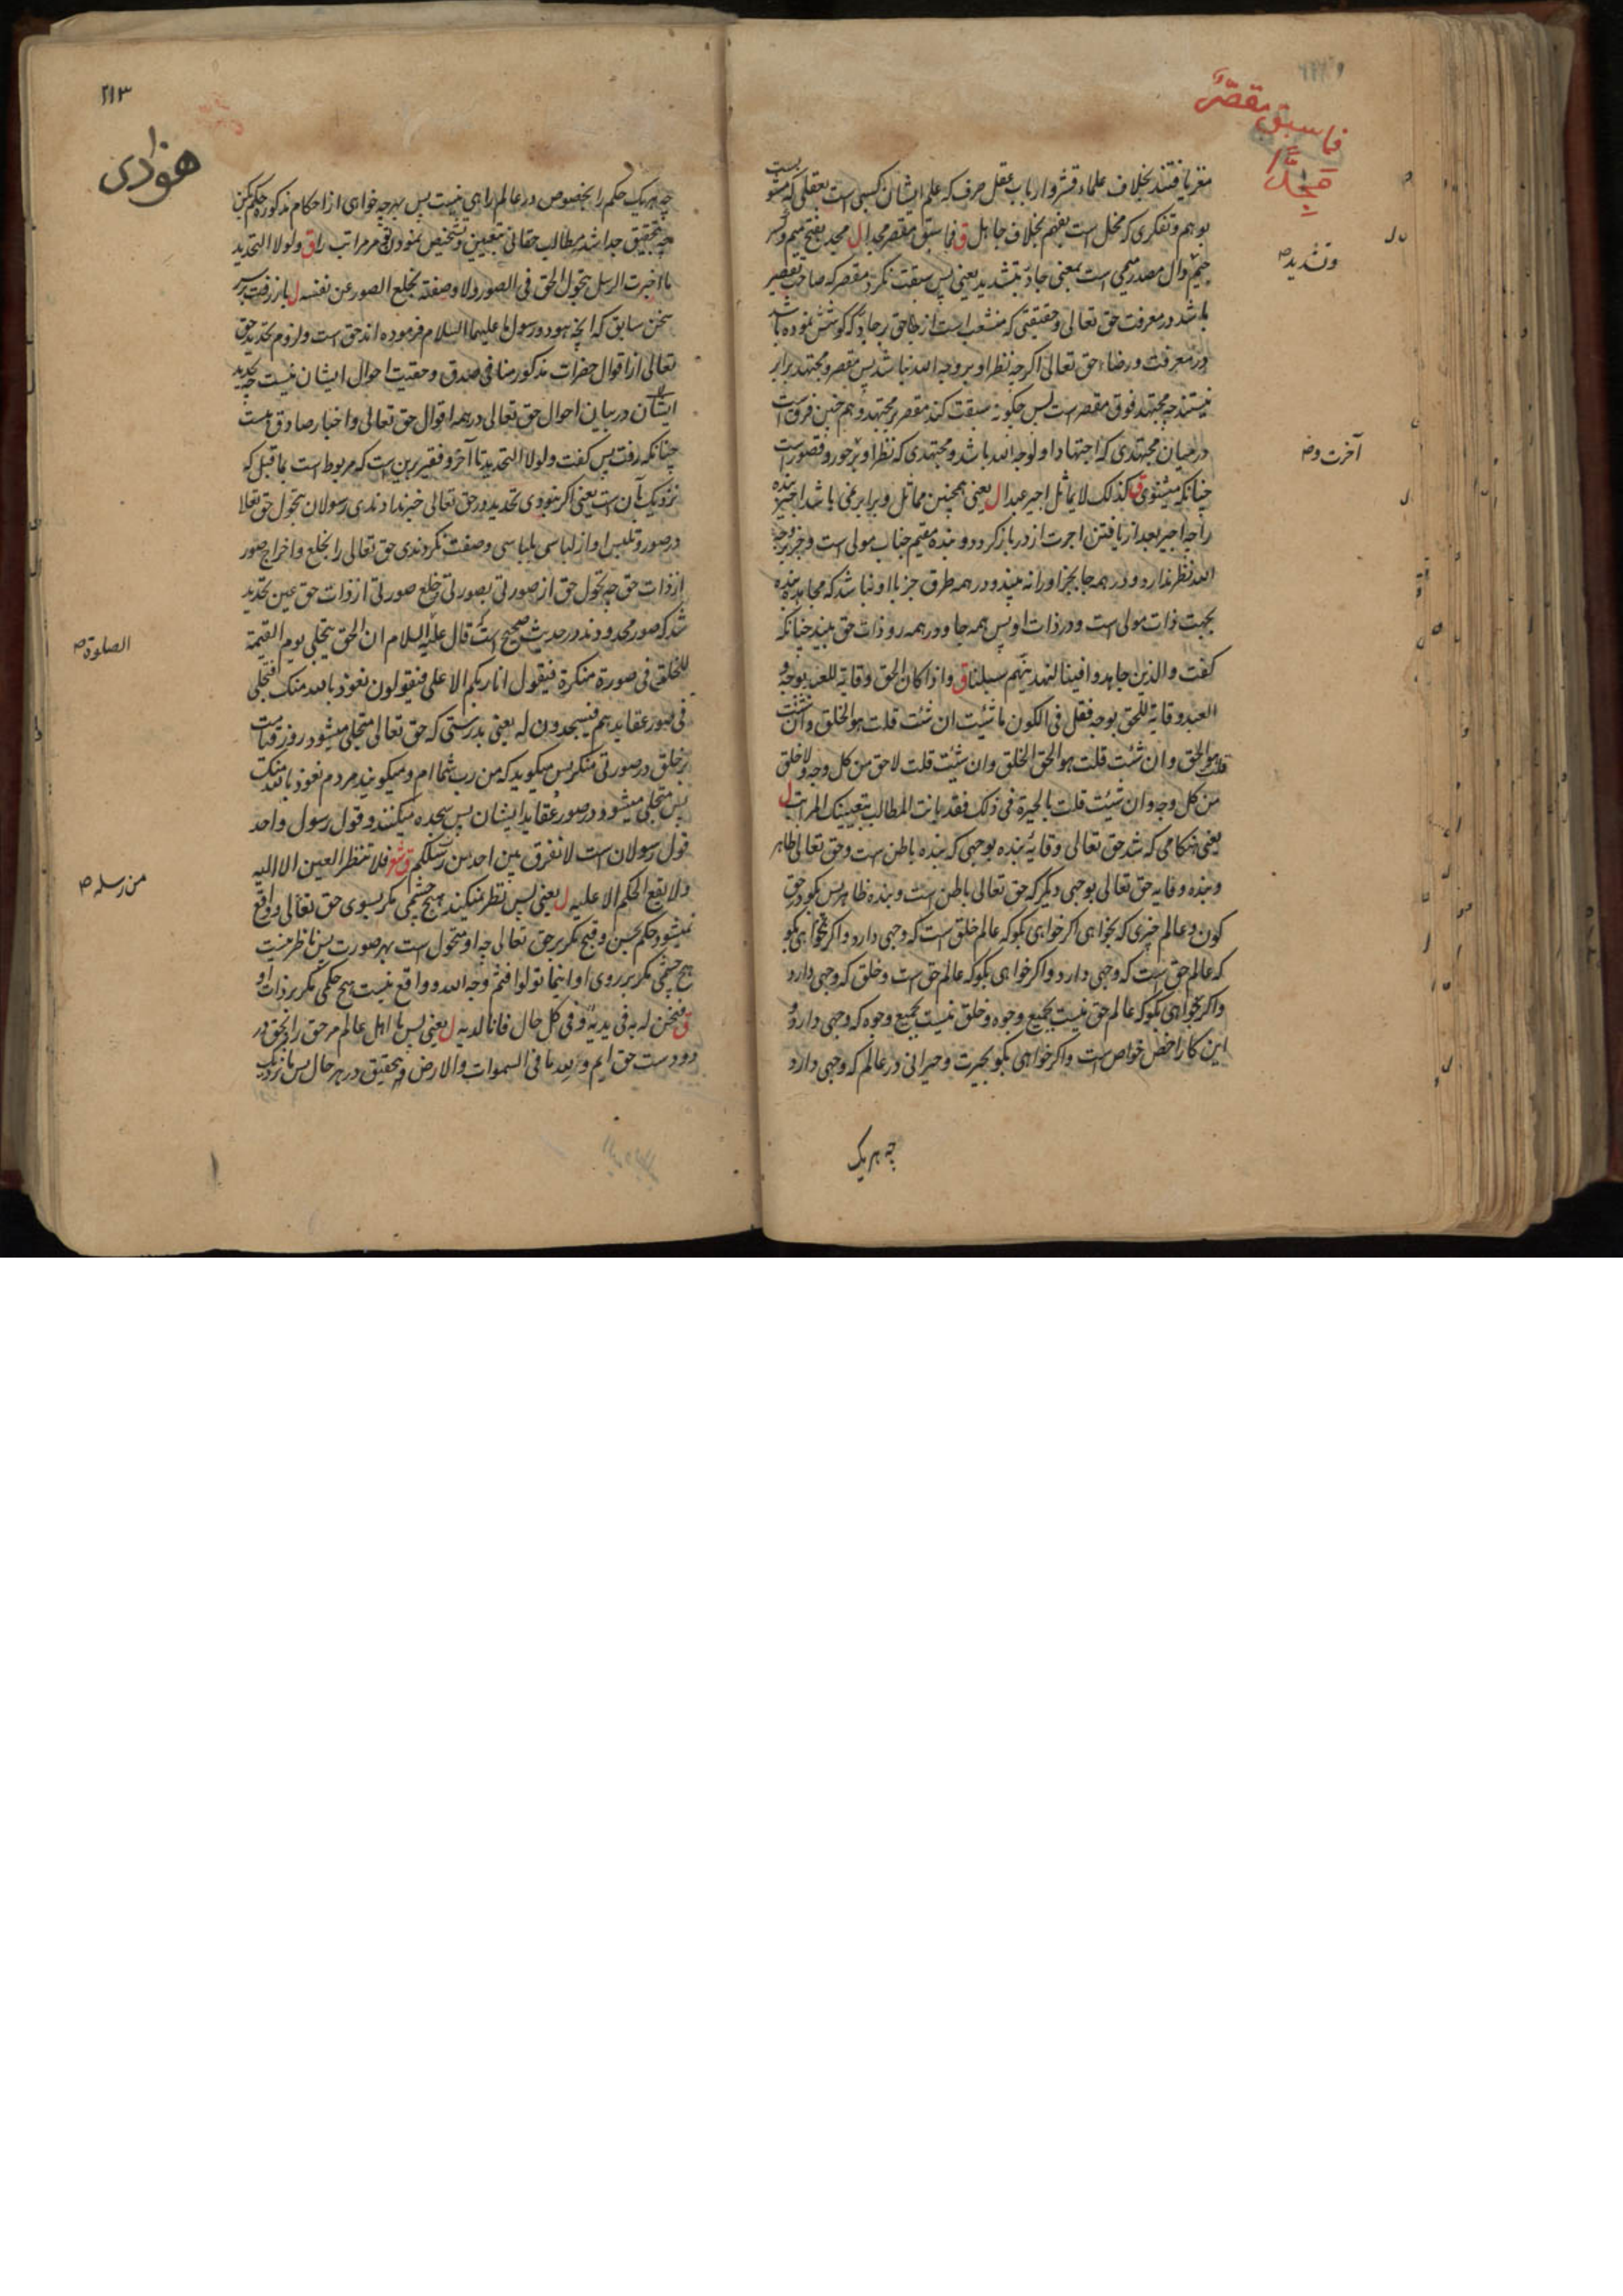 فما سبق مقصّرٌ
مجدًّا
مغز یافتند بخلاف علماء قشر و ارباب عقل صرف که علم ایشان کسبی است بعقلی که مشوبست
بوهم و تفکری که مخل است بفهم بخلاف جاهل ق فما سبق مقصر مجدا ل مجد بفتح میم و کسر
جیم و دال مصدر میمی است بمعنی جادّ بتشدید یعنی پس سبقت نکرد مقصر که صاحب تقصیر
وتشدید ص
باشد در معرفت حق تعالی و حقیقتی که منشعب است از حق بر جادّ که کوشش نموده باشد
در معرفت و رضاء حق تعالی اگرچه نظر او بر وجه الله نباشد پس مقصر و مجتهد برابر
نیستند چه مجتهد فوق مقصر است پس چگونه سبقت کند مقصر بر مجتهد و هم چنین فرقست
در میان مجتهدی که اجتهاد او لوجه الله باشد و مجتهدی که نظر او بر حور و قصور است
آخرت وض
چنانکه میشنوی ق کذلک لا یماثل اجیر عبدا ل یعنی همچنین مماثل و برابر نمی باشد اجیر بنده
را چه اجیر بعد از یافتن اجرت از در باز گردد و بنده مقیم جناب مولی است و جز بر وجه
الله نظر ندارد و در همه جا بجز او را نه بیند و در همه طرق جز با او نباشد که مجاهده بنده
بجهت ذات مولی است و در ذات او پس همه جا و در همه رو ذات حق بیند چنانکه
گفت والذین جاهدوا فینا لنهدینهم سبلنا ق واذا کان الحق وقایة للعبد بوجه و
العبد وقایة للحق بوجه فقل فی الکون ما شئت ان شئت قلت هو الخلق وان شئت
قلت هو الحق وان شئت قلت هو الحق الخلق وان شئت قلت لا حق من کل وجه ولا خلق
من کل وجه وان شئت قلت بالحیرة فی ذلک فقد بانت المطالب بتعیینک المراتب ل
یعنی هنگامی که شد حق تعالی وقایهٔ بنده بوجهی که بنده باطن است و حق تعالی ظاهر
و بنده وقایه حق تعالی بوجهی دیگر که حق تعالی باطن است و بنده ظاهر پس بگو در حق
کون و عالم چیزی که بخواهی اگر خواهی بگو که عالم خلق است که وجهی دارد و اگر بخواهی بگو
که عالم حق است که وجهی دارد و اگر خواهی بگو که عالم حق است و خلق که وجهی دارد
و اگر بخواهی بگو که عالم حق نیست بجمیع وجوه و خلق نیست بجمیع وجوه که وجهی دارد و
این کار اخص خواص است و اگر خواهی بگو بحیرت و حیرانی در عالم که وجهی دارد
چه هر یک
۲۱۳
چه هر یک حکم را بخصوص در عالم راهی نیست پس بهرچه خواهی از احکام مذکوره حکم کن
چه بتحقیق جدا شد مطالب حقانی بتعیین و تشخیص نمودن تو مر مراتب را ق ولولا التحدید
ما اخبرت الرسل بتحول الحق فی الصور ولا وصفته بخلع الصور عن نفسه ل باز رفت بر سر
سخن سابق که آنچه هود و رسول ما علیهما السلام فرموده اند حق است و لزوم تحدید حق
تعالی از اقوال حضرات مذکور منافی صدق و حقیت احوال ایشان نیست چه تحدید
ایشان در بیان احوال حق تعالی در همه اقوال حق تعالی و اخبار صادق هست
چنانکه رفت پس گفت ولولا التحدید تا آخر و فقیر برین است که مربوط است بما قبل که
نزدیک بآن است یعنی اگر نبودی تحدید در حق تعالی خبر ندادندی رسولان بتحول حق تعالا
در صور و تلبس او از لباسی بلباسی و صفت نکردندی حق تعالی را بخلع و اخراج صور
از ذات حق چه تحول حق از صورتی بصورتی و خلع صورتی از ذات حق عین تحدید
شد که صور محدودند و در حدیث صحیح است قال علیه السلام ان الحق یتجلی یوم القیمة
الصلوة ص
للخلق فی صورة منکرة فیقول انا ربکم الاعلی فیقولون نعوذ بالله منک فیتجلی
فی صور عقایدهم فیسجدون له یعنی بدرستی که حق تعالی متجلی میشود روز قیامت
بر خلق در صورتی منکر پس میگوید که من رب شما ام و میگویند مردم نعوذ بالله منک
پس متجلی میشود در صور عقاید ایشان پس سجده میکنند و قول رسول واحد
قول رسولان است لا نفرق بین احد من رسلکم ق شعر فلا تنظر العین الا الیه
من رسله ص
ولا یقع الحکم الا علیه ل یعنی پس نظر نمیکند هیچ چشمی مگر بسوی حق تعالی و واقع
نمیشود حکم بحسن و قبح مگر بر حق تعالی چه او متحول است بهر صورت پس ناظر نیست
هیچ چشمی مگر بر روی او اینما تولوا فثم وجه الله و واقع نیست هیچ حکمی مگر بر ذات او
ق فنحن له به فی یدیه و فی کل حال فانا لدیه ل یعنی پس ما اهل عالم مر حق را و بحق در
دو دست حق ایم ولله ما فی السموات والارض و بتحقیق در هر حال پس ما نزدیک